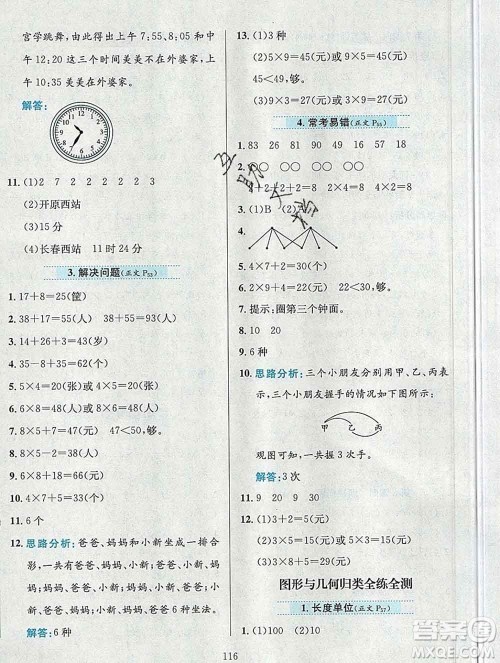 宫学跳舞，由此得出上午7:55、8:05和中
午12:20这三个时间美美不在外婆家，上
午10:35美美在外婆家。
解答：
11.(1)2 7 2 2 2 2 3
(2)开原西站
(3)15分
(4)长春西站 11时24分
3.解决问题(正文P53)
1.17+8=25(筐)
2.38+17=55(人) 55+38=93(人)
3.14+26+13=53(人)
4.35-8+35=62(人)
5.5×4=20(张) 5×4+2=22(张)
6.8×5+7=47(人) 47<50 够。
7.4×2=8(个)
8.2×5=10(元)
9.8×5-2=38(人)
10.4×7+5=33(个)
11.6个
12.思路分析：爸爸、妈妈和小新坐成一排合
影，一共有爸爸、妈妈、小新；爸爸、小新、妈
妈；小新、爸爸、妈妈；小新、妈妈、爸爸；妈
妈、爸爸、小新；妈妈、小新、爸爸6种坐法。
解答：6种
13.(1)3种
(2)5×9=45(元)或9×5=45(元)
45<49。够。
(3)9×3=27(元)或3×9=27(元)
4.常考易错(正文P55)
1.83 26 91 35 16 63
2.○○ ○○ ○○ ○○
2+2+2+2=8 2×4=8 4×2=8
3.(1)B (2)A
5.4×7=28(人) 28>27 不够。
6.2×7+8=22(个) 22<30。够。
7.提示：圈第三个钟面。
8.10 20
9.6种
10.思路分析：三个小朋友分别用甲、乙、丙表
示，三个小朋友握手的情况如下图。
甲 乙 丙
观图可知，一共握3次手。
解答：3次
11.9 20 9 30
12.(1)3+2=5(元)
(2)5×5=25(元)
(3)9×7=63(元)或7×9=63(元)
图形与几何归类全练全测
1.长度单位(正文P57)
1.(1)100 (2)10
116
作业帮
MXQE.COM